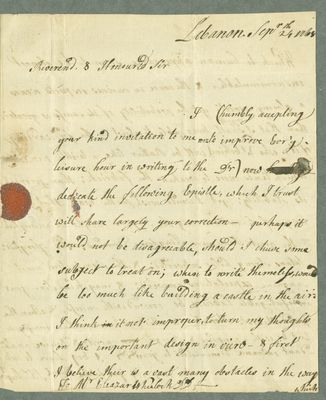 Lebanon Sepr. 24th
Reverend & Honoured Sir
I (humbly accepting
your kind invitation to me to improve ev'ry
leisure hour in writing to the Dr) now
dedicate the following Epistle, which I trust
will share largely your correction — perhaps it
would not be disagreeable, should I chuse some
subject to treat on; when to write themeless, would
be too much like building a castle in the air:
I think it not improper, to turn my thoughts
on the important design in view & first
I believe their is a vast many obstacles in the way
To Mr. Eleazar Wheelock which